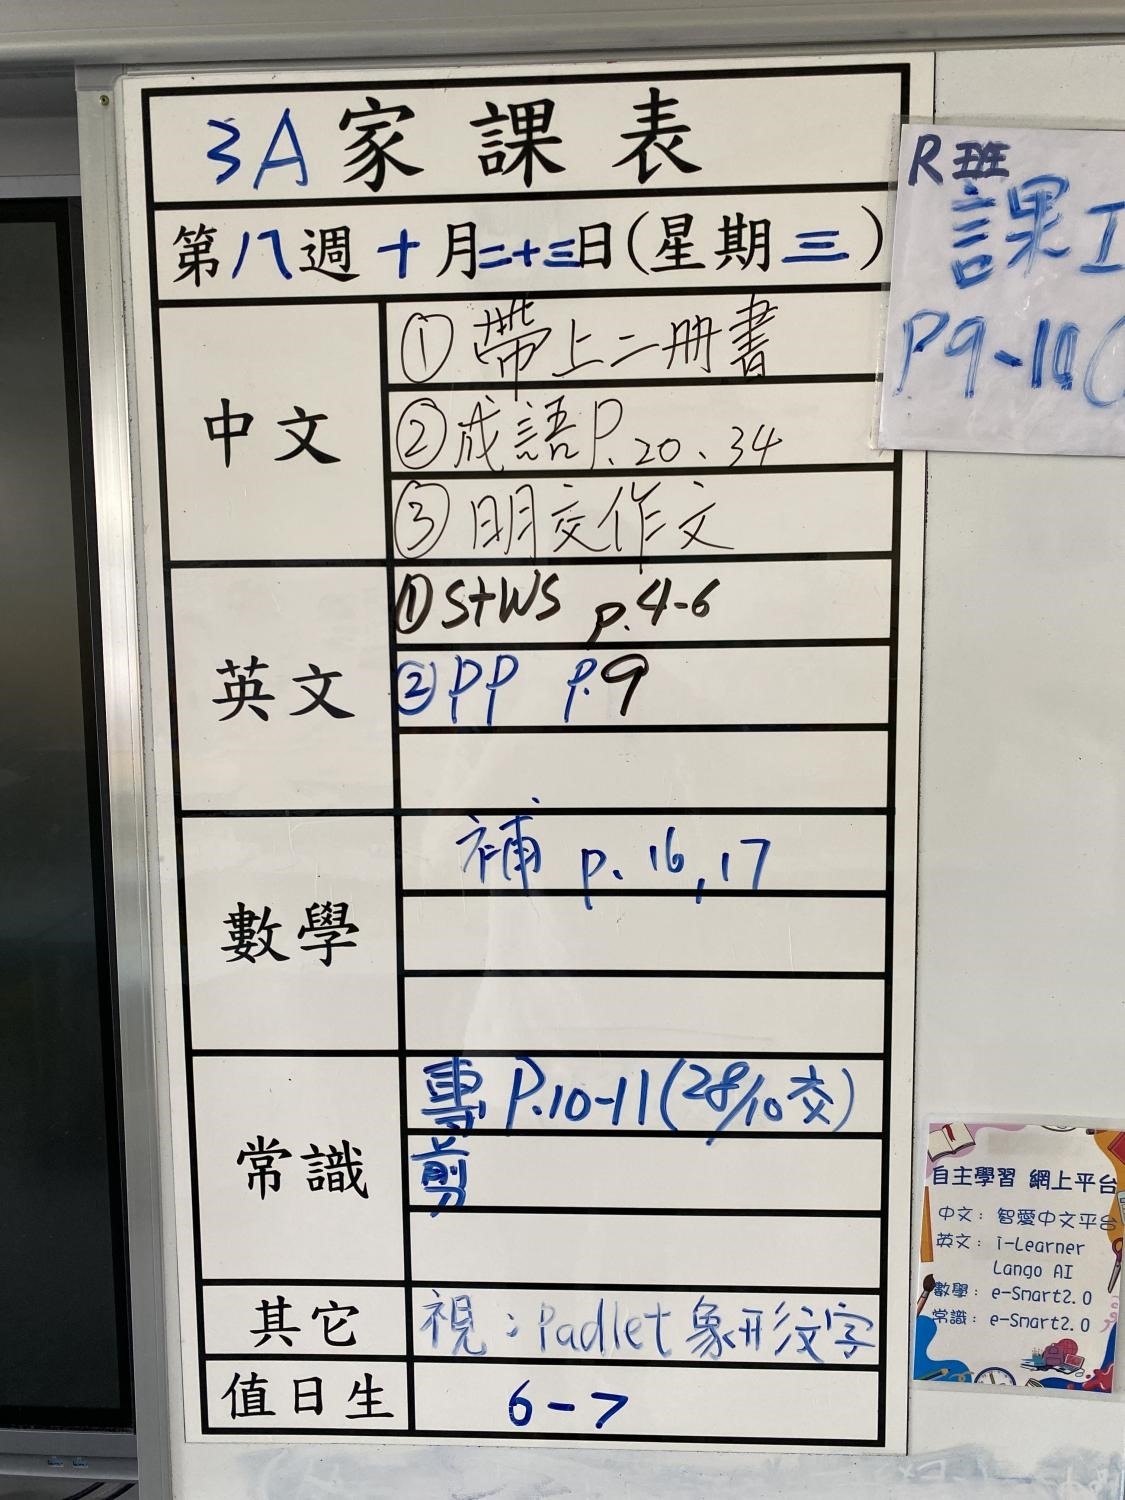 3A 家課表
第八週 十月二十三日(星期三)
中文
① 帶上二冊書
② 成語P.20、34
③ 明交作文
英文
① S+WS p.4-6
② PP p.9
數學
補 p.16,17
常識
專 P.10-11(28/10交)
剪
其它
視：Padlet 象形文字
值日生
6-7
R班
課工
P9-10(
自主學習 網上平台
中文：智愛中文平台
英文：i-Learner
Lango AI
數學：e-Smart2.0
常識：e-Smart2.0